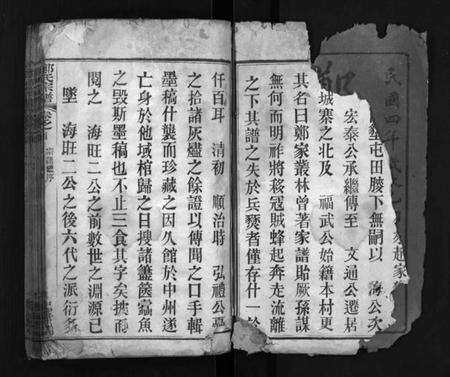 民國四年
墾屯田賸下無嗣以 海公次
宏泰公承繼傳至 文通公遷居
城寨之北及 福武公始籍本村更
其右曰鄭家叢林曾著家譜貽厥孫謀
無何而明祚將移寇賊蜂起奔走流離
之下其譜之失於兵燹者僅存什一於
仟百耳 清初 順治時 弘禮公亟
之拾諸灰燼之餘證以傳聞之口手輯
墨稿什襲而珍藏之因久館於中州遂
亡身於他域棺歸之日搜諸籩篋蠹魚
之毁斯墨稿也不止三食其字矣披而
閱之 海旺二公之前數世之淵源已
墜 海旺二公之後六代之派衍